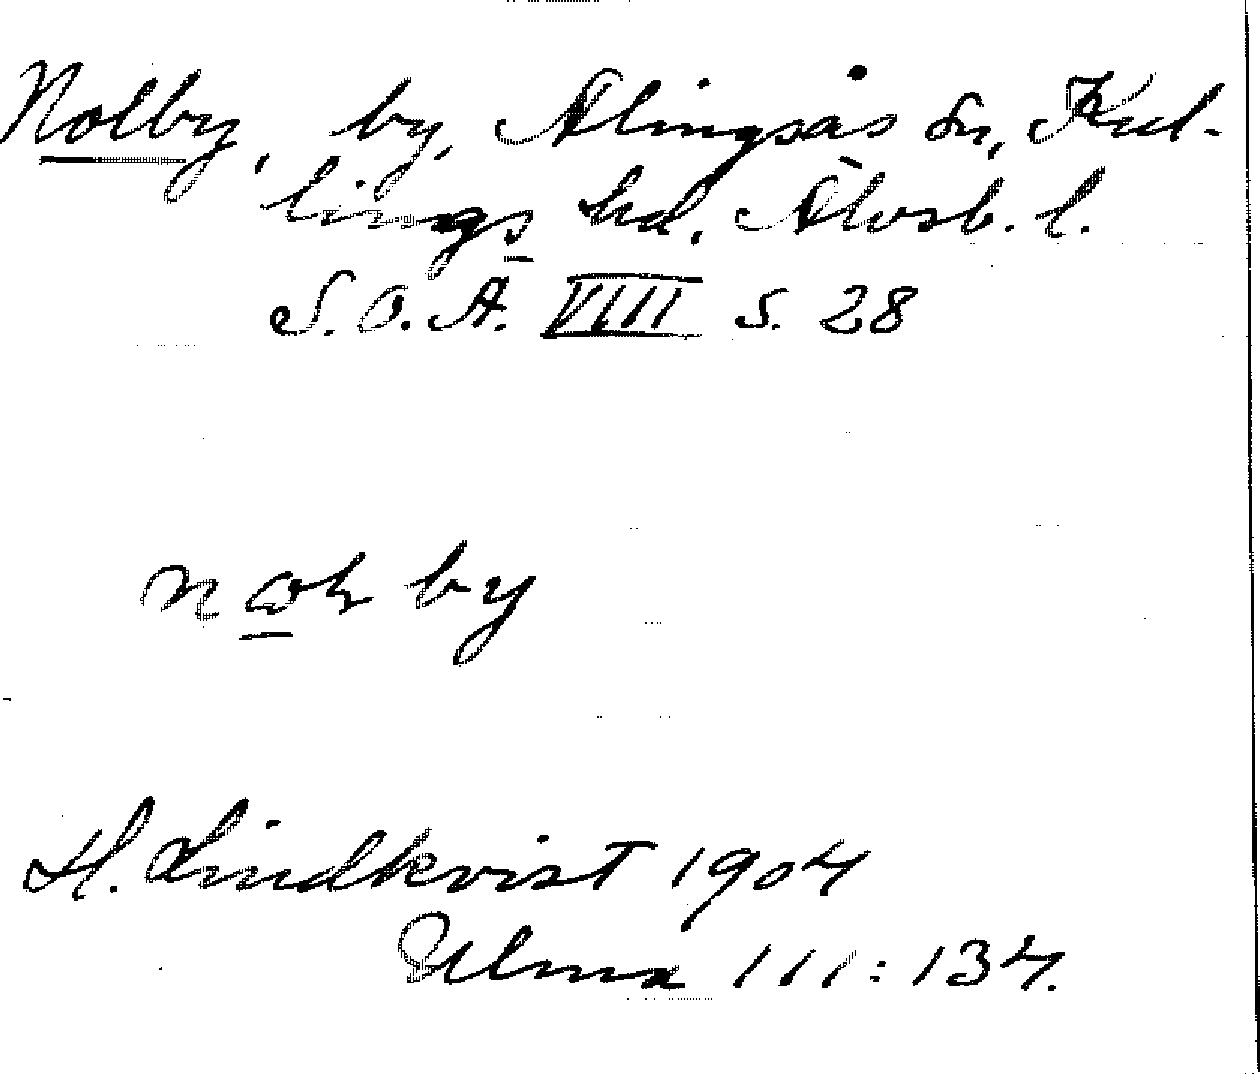 Nolby, by, Alingsås sn, Kul-
lings hd. Älvsb. l.
S. O. Ä. VIII s. 28
by
H. Lindkvist 1904
Ulma 111:134.